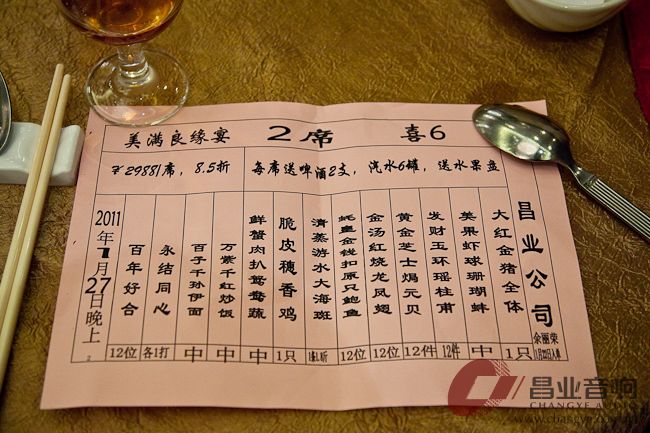 美满良缘宴 2席 喜6
¥2988/席，8.5折 每席送啤酒2支，汽水6罐，送水果盘
昌业公司
余丽荣
大红金猪全体 1只
美果虾球珊瑚蚌 中
发财玉环瑶柱甫 12件
黄金芝士焗元贝 12件
金汤红烧龙凤翅 12位
蚝皇金钱扣原只鲍鱼 12位
清蒸游水大海斑
脆皮穗香鸡 1只
鲜蟹肉扒鸳鸯蔬 中
万紫千红炒饭 中
百子千孙伊面 中
永结同心 各1打
百年好合 12位
2011年1月27日晚上
2
昌业音响
CHANGYE A